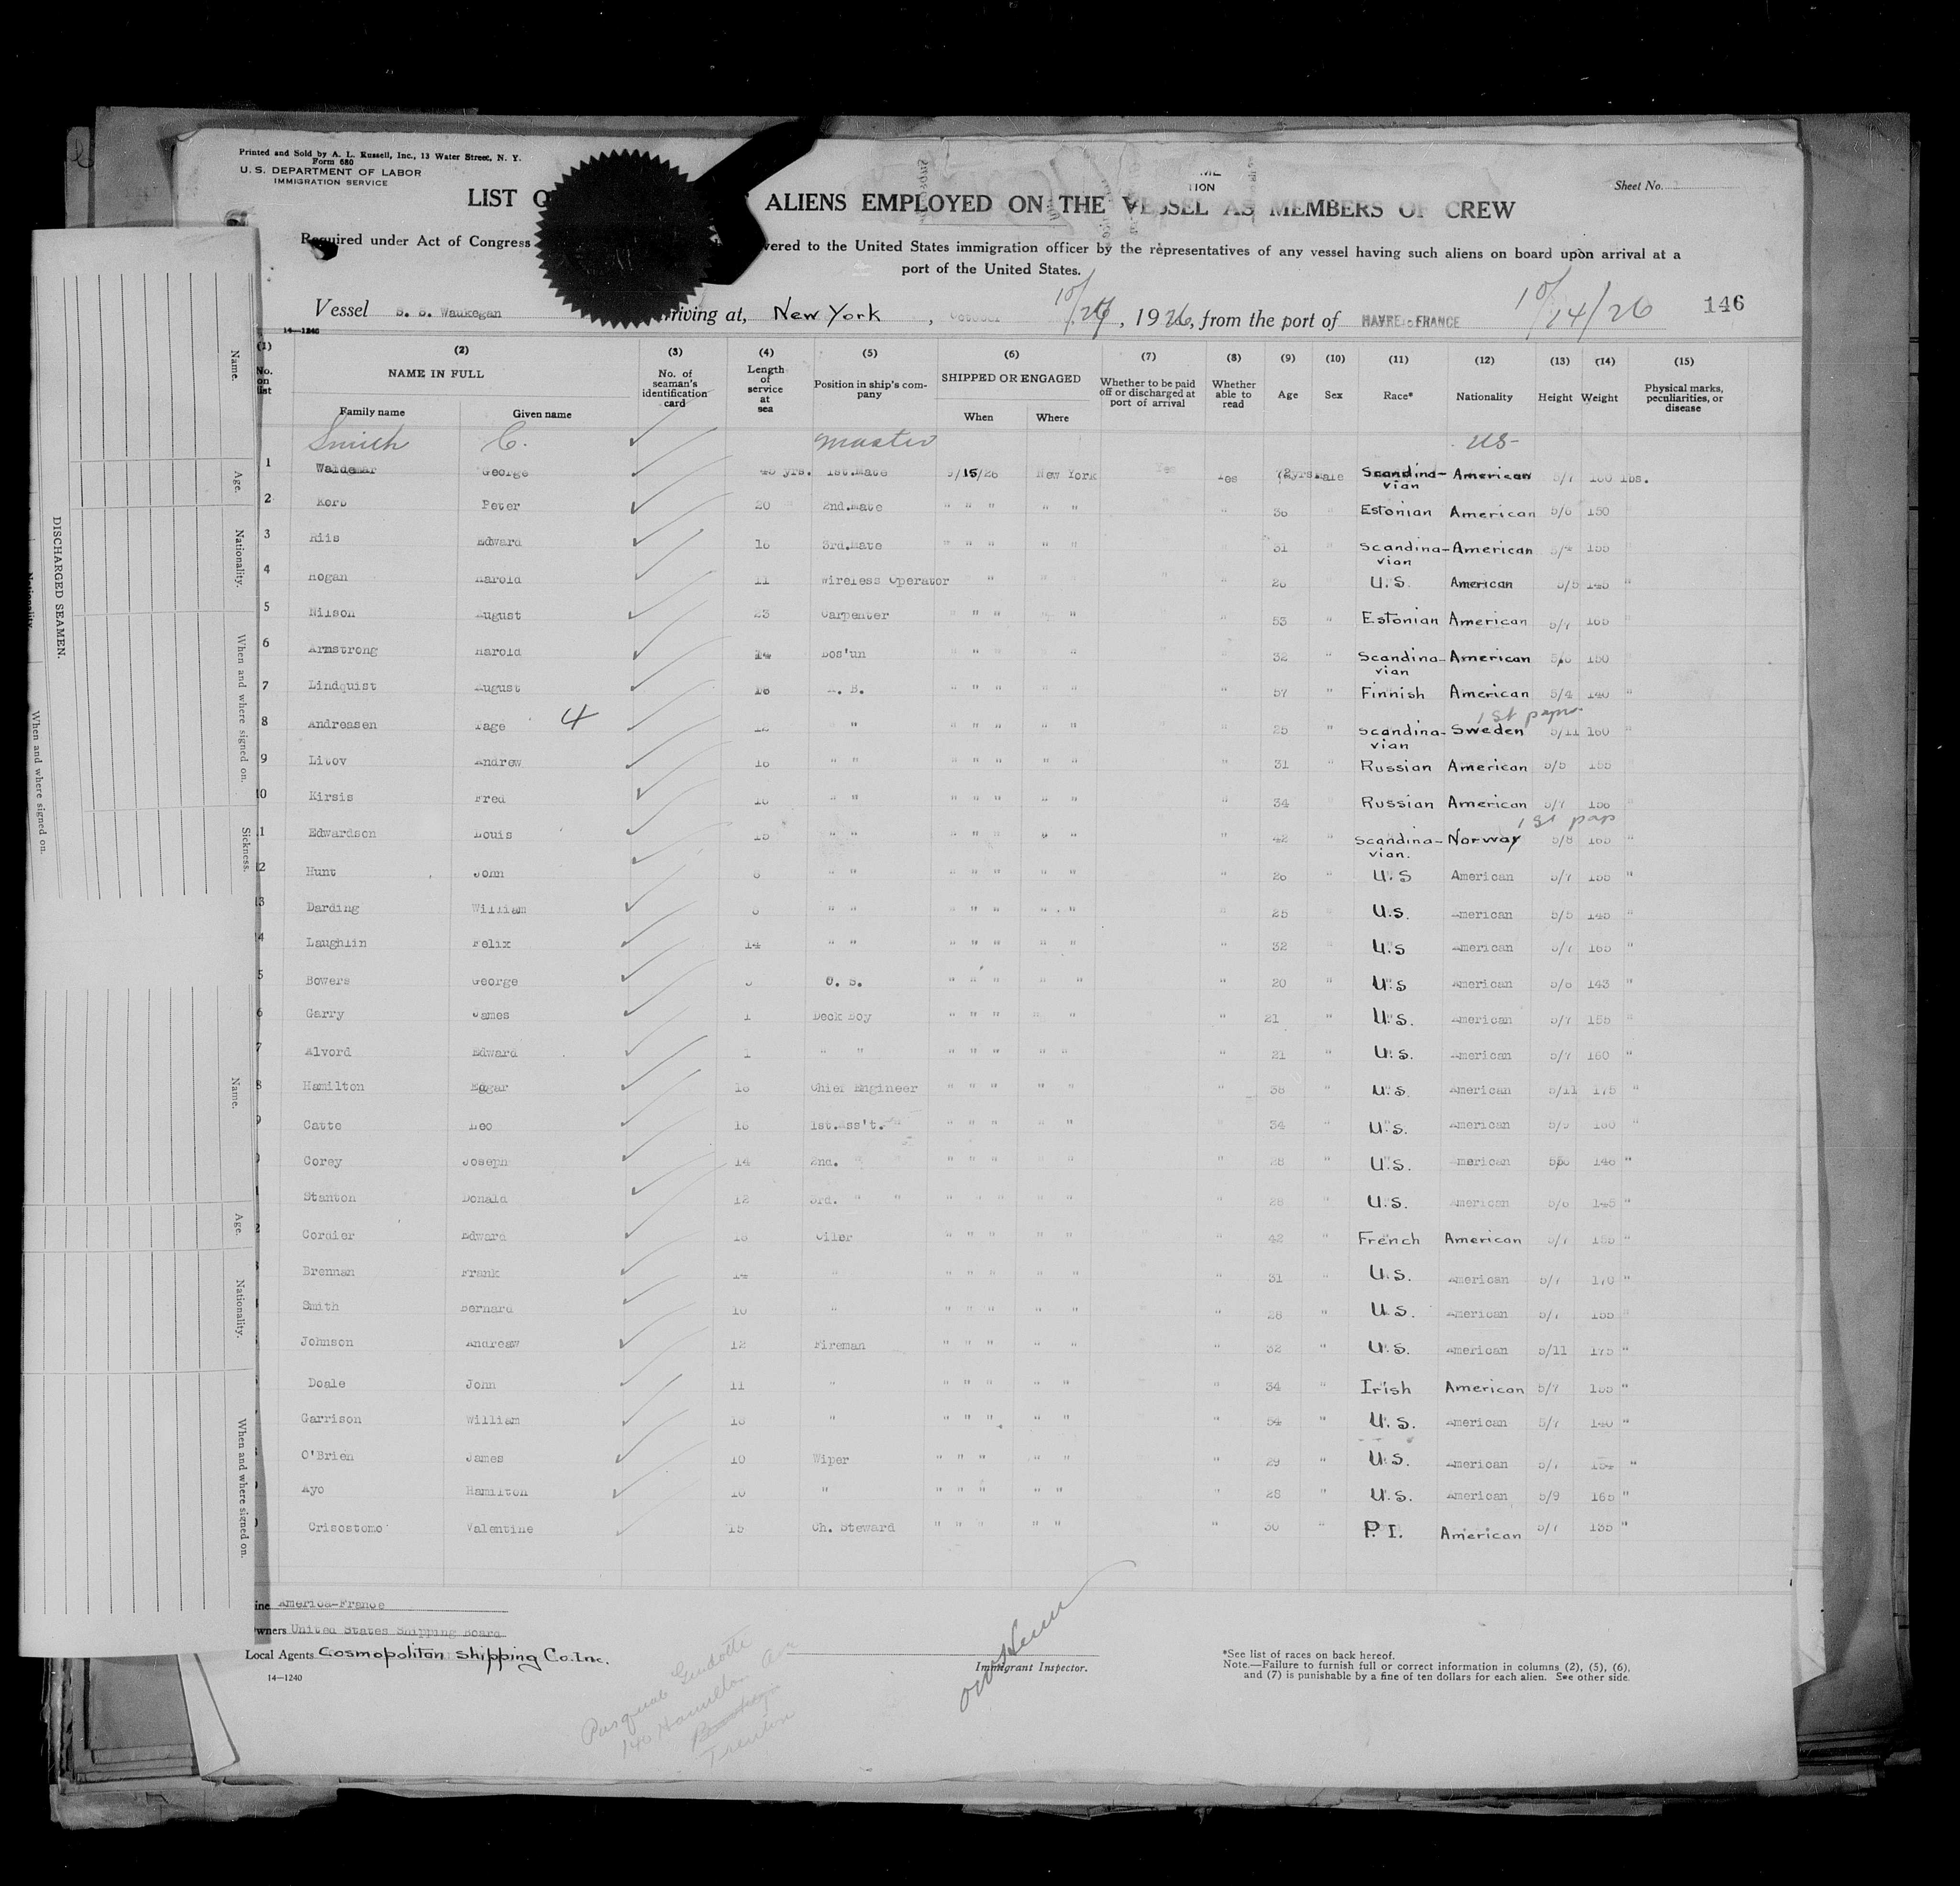 Printed and Sold by A. L. Russell, Inc., 13 Water Street, N. Y.
Form 680
U. S. DEPARTMENT OF LABOR
IMMIGRATION SERVICE
Sheet No.
LIST ALIENS EMPLOYED ON THE VESSEL AS MEMBERS OF CREW
Required under Act of Congress vered to the United States immigration officer by the representatives of any vessel having such aliens on board upon arrival at a
port of the United States.
Vessel S. S. Waukegan riving at, New York, 10/26, 1926, from the port of HAVRE FRANCE 10/14/26 146
14—1240
(1) (2) (3) (4) (5) (6) (7) (8) (9) (10) (11) (12) (13) (14) (15)
No. on list NAME IN FULL No. of seaman's identification card Length of service at sea Position in ship's company SHIPPED OR ENGAGED Whether to be paid off or discharged at port of arrival Whether able to read Age Sex Race* Nationality Height Weight Physical marks, peculiarities, or disease
Family name Given name When Where
Smith C. Master US
1 Waldemar George yrs. 1st.Mate 9/15/26 New York Yes Yes Male Scandinavian American 5/7 lbs.
2 Kerb Peter 20 2nd.Mate " " " " " " 36 " Estonian American 5/6 150
3 Riis Edward 3rd.Mate " " " " " 31 " Scandinavian American 5/4 155
4 Hogan Harold 11 Wireless Operator " " U.S. American 5/5 145 "
5 Nilson August 23 Carpenter " " " " " " 53 " Estonian American 5/7 165
6 Armstrong Harold 14 Bos'un " " " " " 32 " Scandinavian American 150
7 Lindquist August 16 A. B. " " " " " " 57 " Finnish American 5/4 140 "
8 Andreasen Tage 4 12 " " " " " " " 25 " Scandinavian Sweden 1st paper 5/11 160 "
9 Litov Andrew 16 " " " " " " " " 31 " Russian American 5/5 155
10 Kirsis Fred " " " " " " " " 34 Russian American 5/7 156
11 Edwardson Louis 15 " " " " " " " " 42 " Scandinavian. Norway 1st pap 5/8 165 "
12 Hunt John " " " " " " " " 26 " U.S American 5/7 155 "
13 Darding William " " " " " " " 25 U.S. American 5/5 145 "
14 Laughlin Felix 14 " " " " " " " " 32 " U.S American 5/7 165 "
15 Bowers George O. S. " " " " " " 20 " U.S American 5/6 143 "
16 Garry James 1 Deck Boy " " " " " " 21 " U.S. American 5/7 155 "
17 Alvord Edward 1 " " " " " " " " 21 " U.S. American 5/7 160 "
18 Hamilton Edgar Chief Engineer " " " " " " 38 " U.S. American 5/11 175 "
19 Catte Leo 1st.Ass't. " " " " " 34 " U.S. American 5/9 160 "
Corey Joseph 14 2nd. " " " " " " 28 " U.S. American 146 "
Stanton Donald 12 3rd. " " " " " " " " 28 " U.S. American 5/6 145 "
Cordier Edward Oiler " " " " " " 42 " French American 5/7 155 "
Brennan Frank 14 " " " " " " " 31 " U.S. American 5/7 170 "
Smith Bernard 10 " " " " " " " 28 " U.S. American 5/7 155 "
Johnson Andreaw 12 Fireman " " " " " " 32 " U.S. American 5/11 175 "
Doale John 11 " " " " " " " 34 " Irish American 5/7 155 "
Garrison William " " " " " " " 54 " U.S. American 5/7 140 "
O'Brien James 10 Wiper " " " " " " 29 " U.S. American 5/7 154 "
Ayo Hamilton 10 " " " " " " " 28 " U.S. American 5/9 165 "
Crisostomo Valentine 15 Ch. Steward " " " " " " 30 " P.I. American 5/7 135 "
ine America-France
wners United States Shipping Board
Local Agents Cosmopolitan Shipping Co. Inc.
14—1240
Immigrant Inspector.
*See list of races on back hereof.
Note.—Failure to furnish full or correct information in columns (2), (5), (6),
and (7) is punishable by a fine of ten dollars for each alien. See other side.
140 Hamilton Av
Trenton
DISCHARGED SEAMEN.
Name.
Age.
Nationality.
When and where signed on.
Sickness.
Name.
Age.
Nationality.
When and where signed on.
Nationality.
When and where signed on.